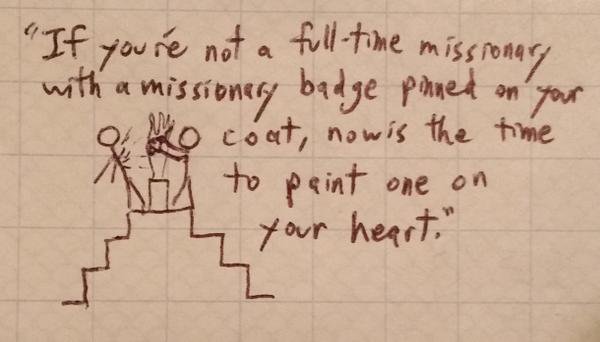 "If you're not a full-time missionary
with a missionary badge pinned on your
coat, now is the time
to paint one on
your heart."